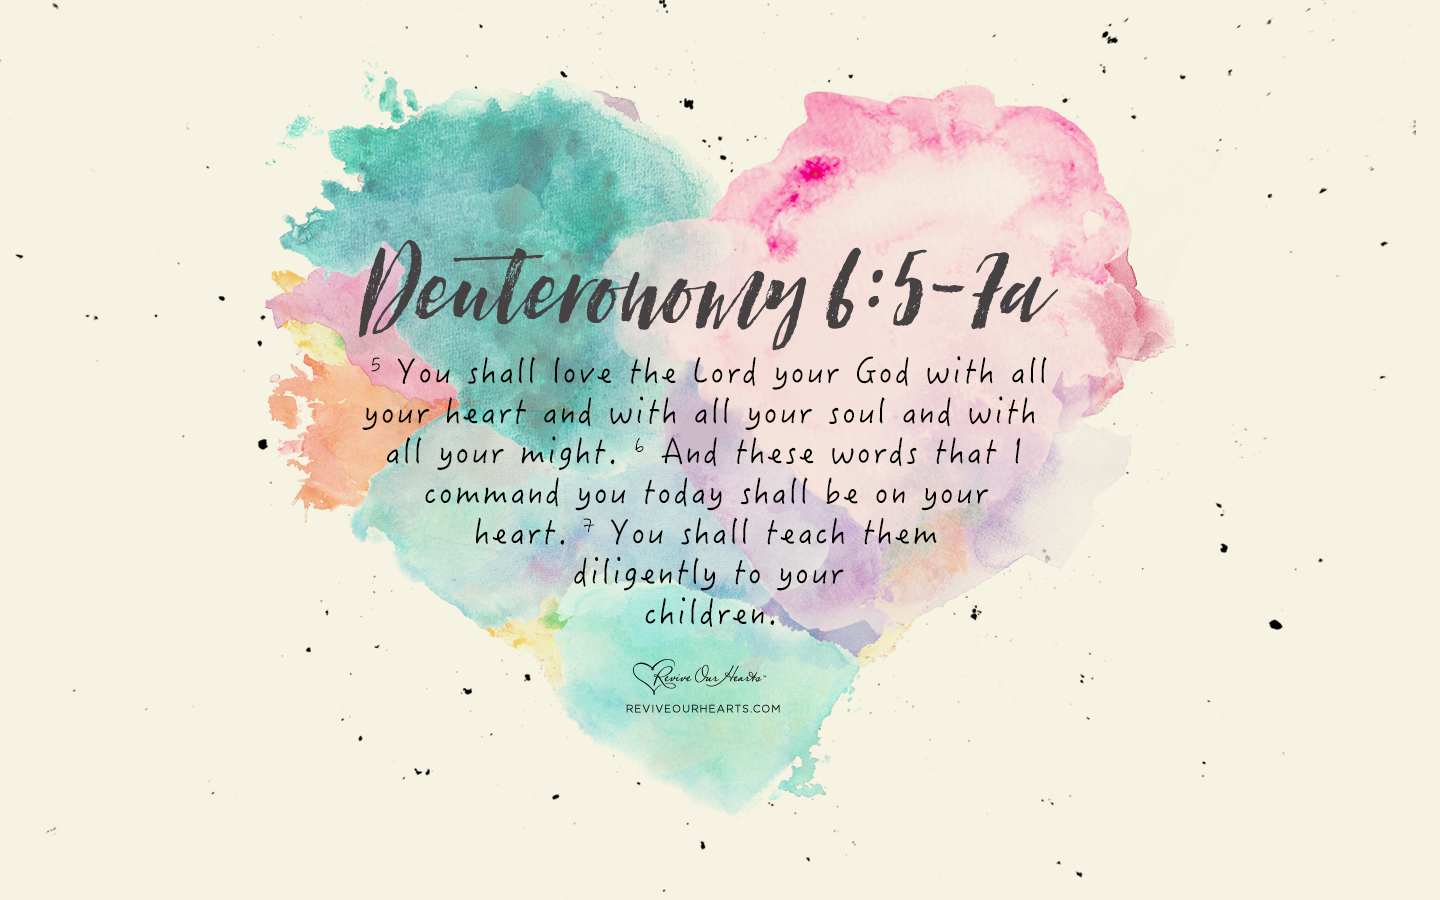 Deuteronomy 6:5-7a
5 You shall love the Lord your God with all
your heart and with all your soul and with
all your might. 6 And these words that I
command you today shall be on your
heart. 7 You shall teach them
diligently to your
children.
Revive Our Hearts™
REVIVEOURHEARTS.COM